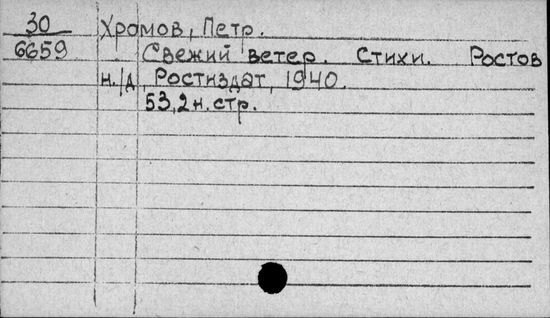 30 Хромов, Петр.
6659 Свежий ветер. Стихи. Ростов
н./Д Ростиздат, 1940.
53,2 н.стр.